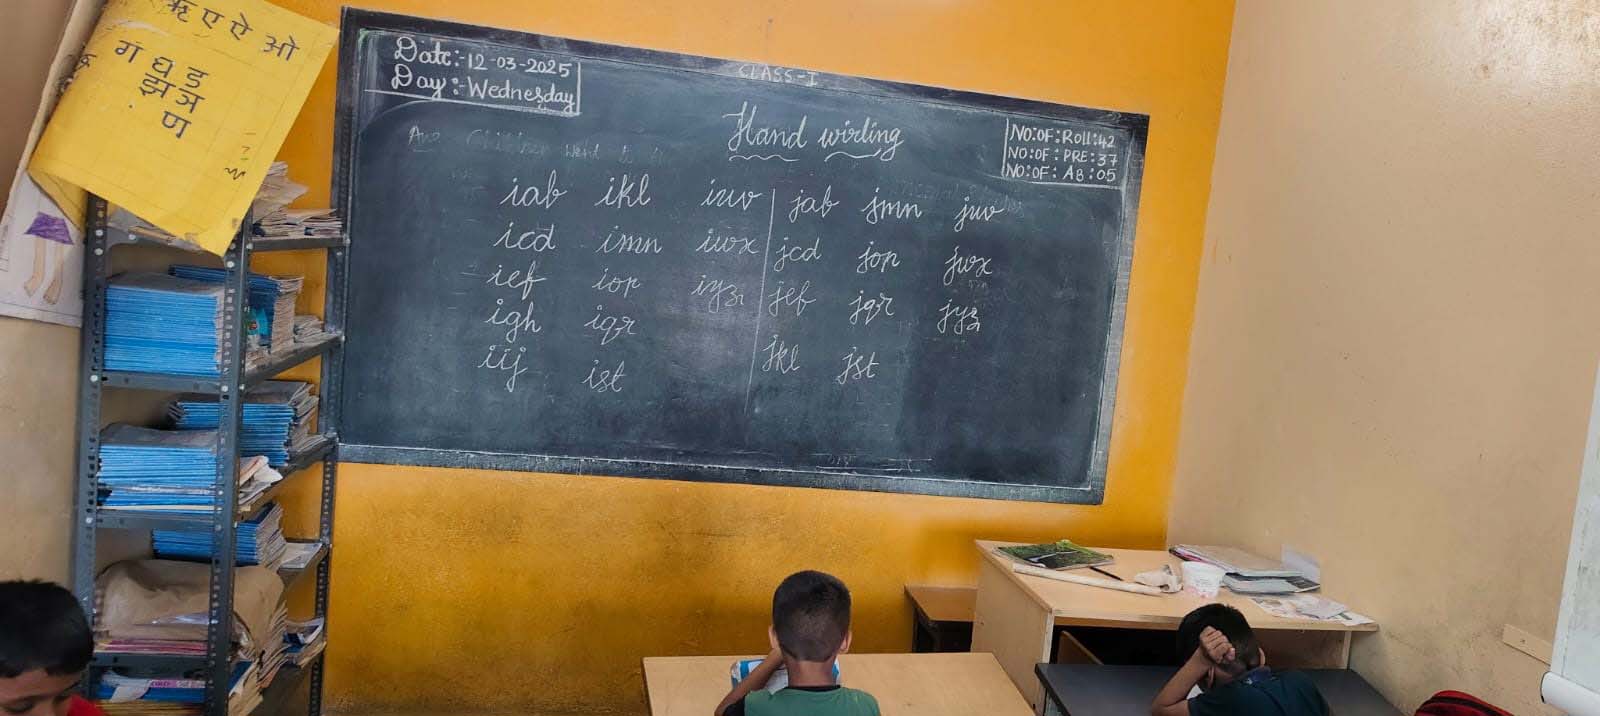 ऋ ए ऐ ओ
ग घ ड
झ ञ
ण
Date:-12-03-2025
Day:-Wednesday
CLASS-I
Hand wirling
NO:OF:Roll:42
NO:OF:PRE:37
NO:OF:AB:05
iab ikl iuv jab jmn juv
icd imn iwx jcd jop jwx
ief iop iyz jef jqr jyz
igh iqr jkl jst
iij ist